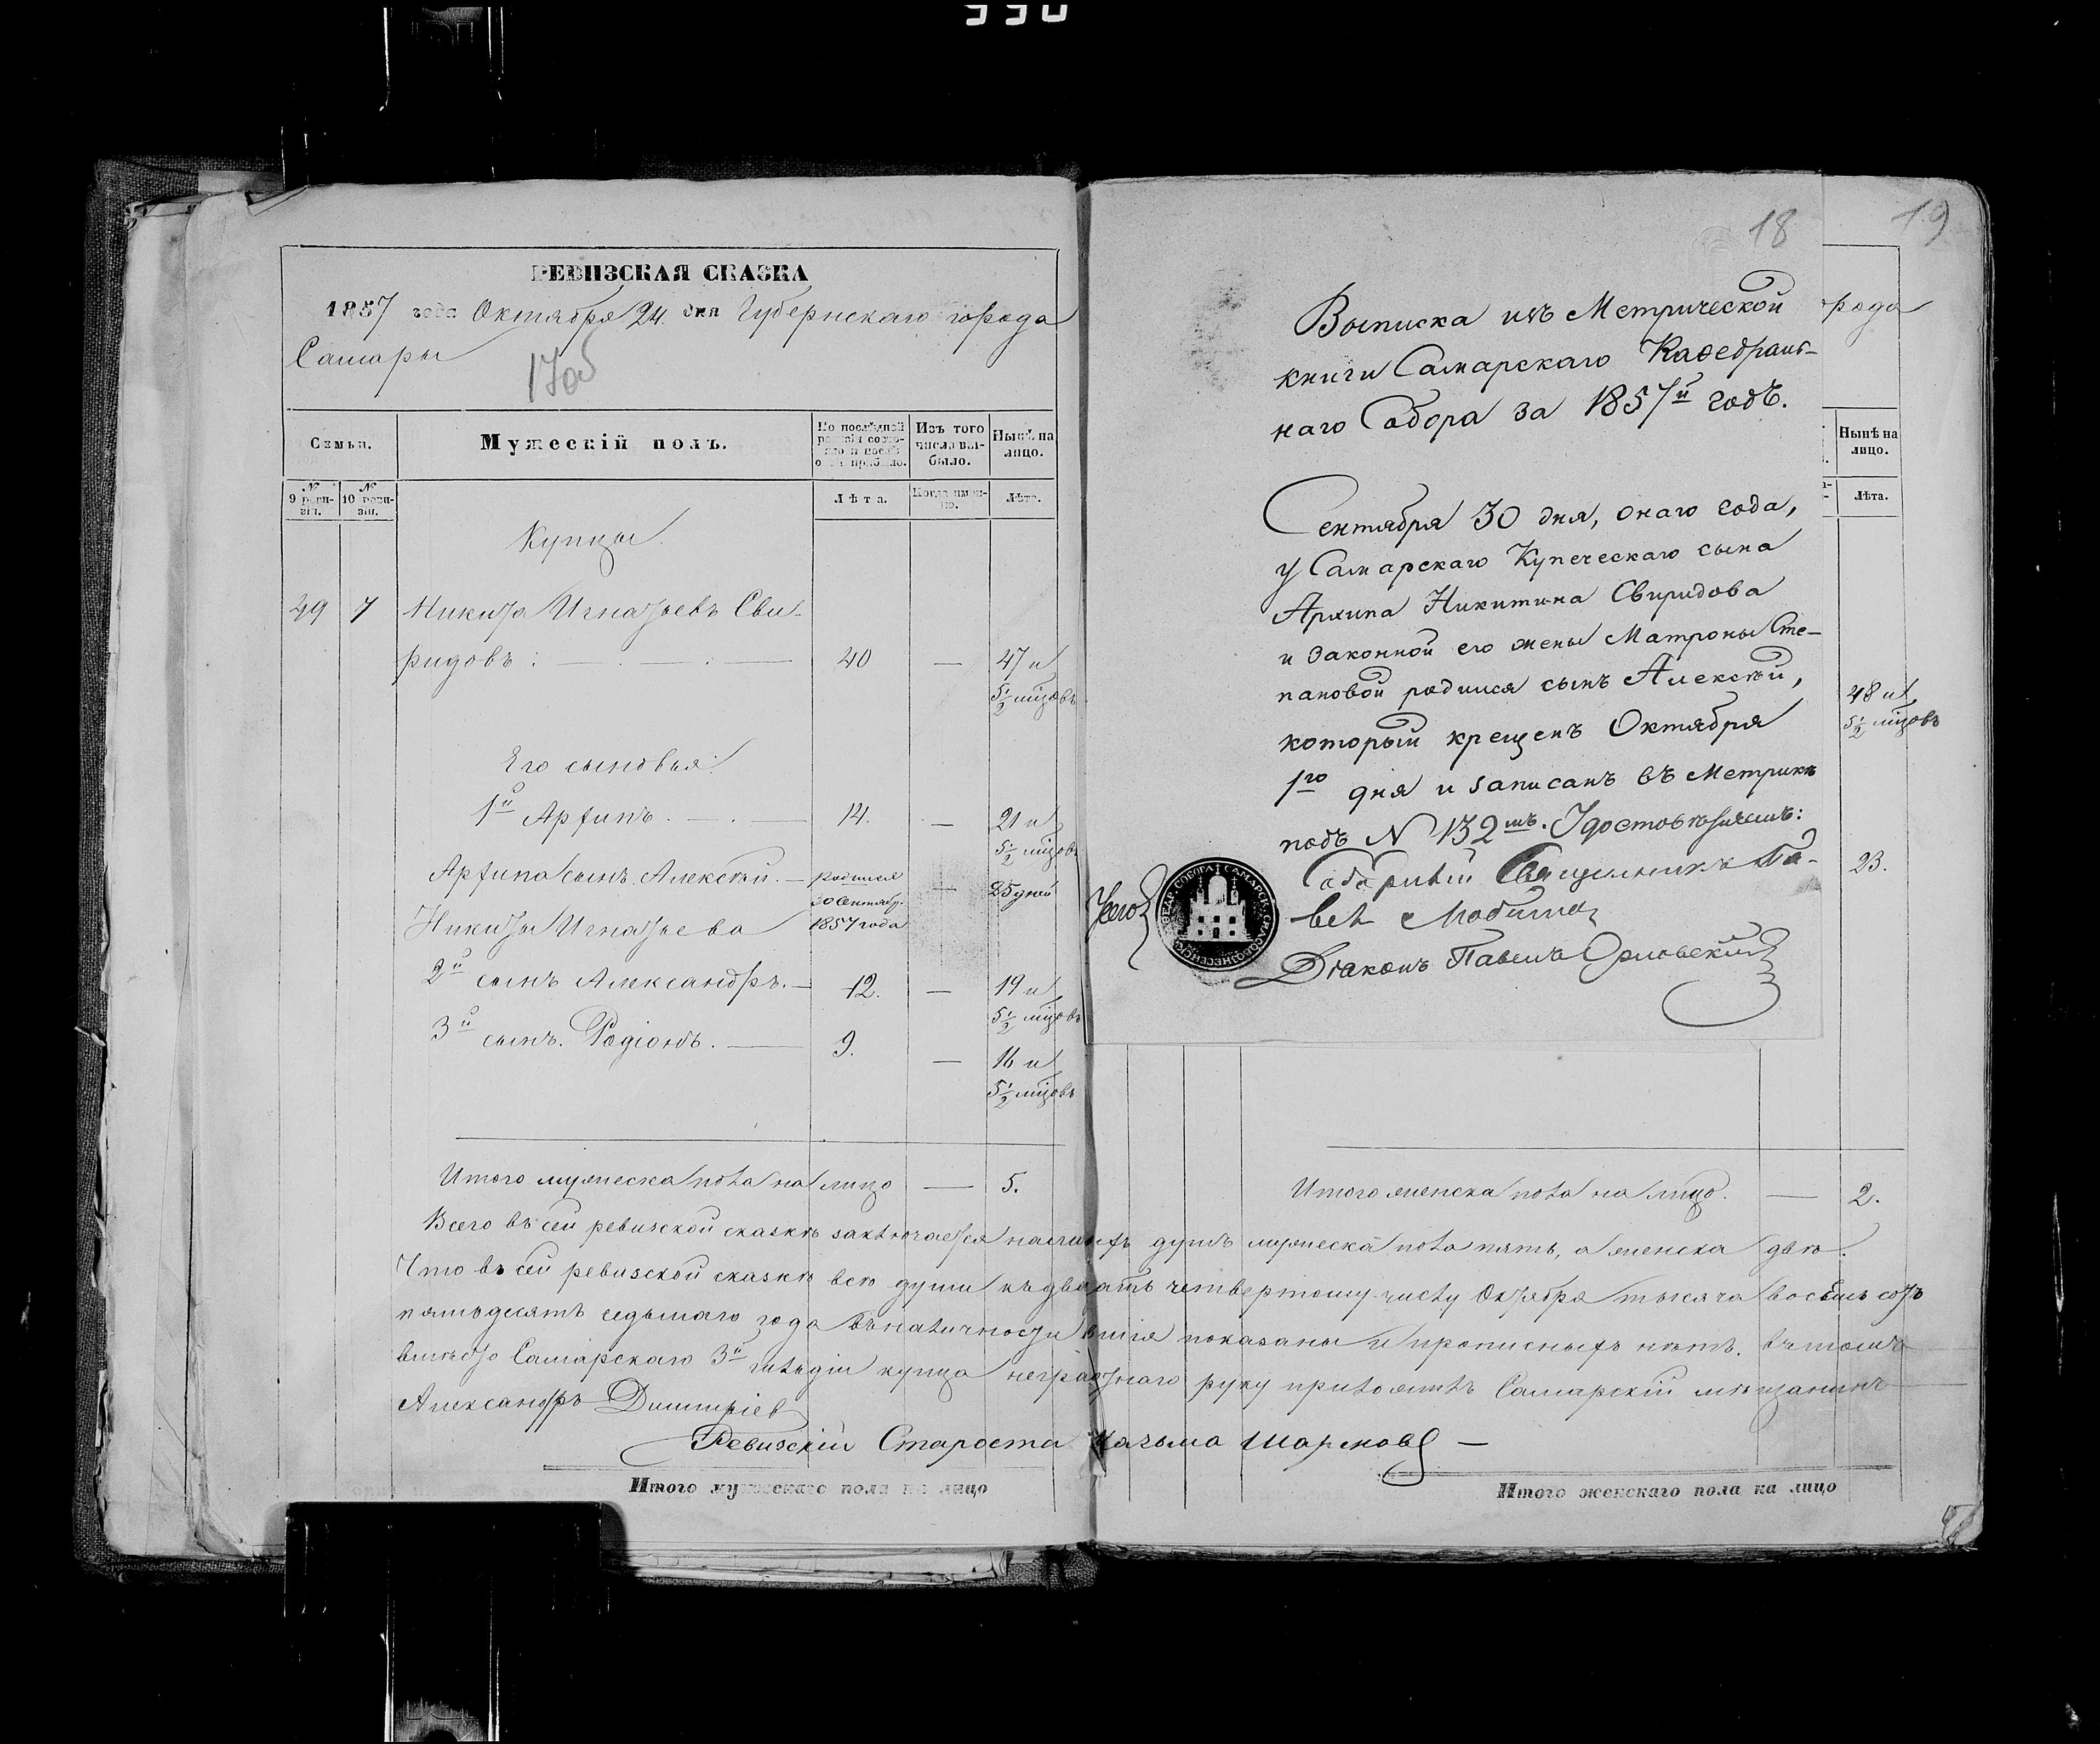 РЕВИЗСКАЯ СКАЗКА
1857 года Октября 24 дня Губернскаго города
Самары
1705
Семьи.
Мужескій полъ.
По послѣдней ревизіи состояло и послѣ оной прибыло.
Изъ того числа выбыло.
Нынѣ на лицо.
№ 9 ревизіи.
№ 10 ревизіи.
Лѣта.
Когда именно.
Лѣта.
Купцы
49 7 Никита Игнатьевъ Сви-
ридовъ: 40 — 47 и
5 1/2 мцовъ
Его сыновья:
1й Архипъ. 14. — 21 и
5 1/2 мцовъ
Архипа сынъ Алексѣй. — родился
30 Сентяб.
1857 года — 25 дней
Никиты Игнатьева
2й сынъ Александръ. — 12. — 19 и
5 1/2 мцовъ
3й сынъ. Родіонъ. — 9. — 16 и
5 1/2 мцовъ
Итого мужеска пола на лицо — 5.
18
19
Выписка изъ Метрической
книги Самарскаго Каѳедраль-
наго Собора за 1857й годъ.
Сентября 30 дня, онаго года,
у Самарскаго Купеческаго сына
Архипа Никитина Свиридова
и законной его жены Матроны Сте-
пановой родился сынъ Алексѣй,
который крещенъ Октября
1го дня и записанъ въ Метрикѣ
подъ N 132мъ. Удостовѣряемъ:
Соборный Священникъ Па-
велъ
Діаконъ Павелъ Орловскій
рода
Нынѣ на лицо.
Лѣта.
48 и
5 1/2 мцовъ
23.
Итого женска пола на лицо. — 2.
Всего въ сей ревизской сказкѣ заключается наличныхъ душъ мужеска пола пять, а женска двѣ.
Что въ сей ревизской сказкѣ всѣ души къ двадцать четвертому числу Октября тысяча восемь сотъ
пятьдесятъ седьмаго года въ наличности бывшія показаны и прописныхъ нѣтъ. въ томъ
вмѣсто Самарскаго 3й гильдіи купца неграмотнаго руку приложилъ Самарскій мѣщанинъ
Александръ Димитріев
Ревизскій Староста Казьма
Итого мужескаго пола на лицо
Итого женскаго пола на лицо